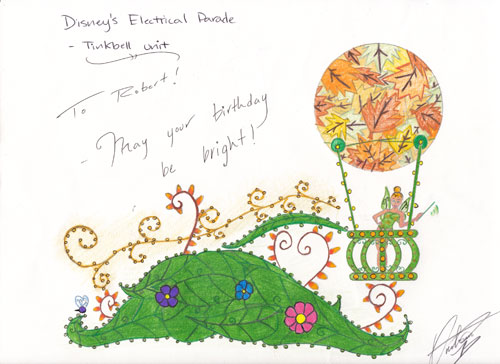 Disney's Electrical Parade
- Tinkbell unit
To Robert!
- May your birthday
be bright!